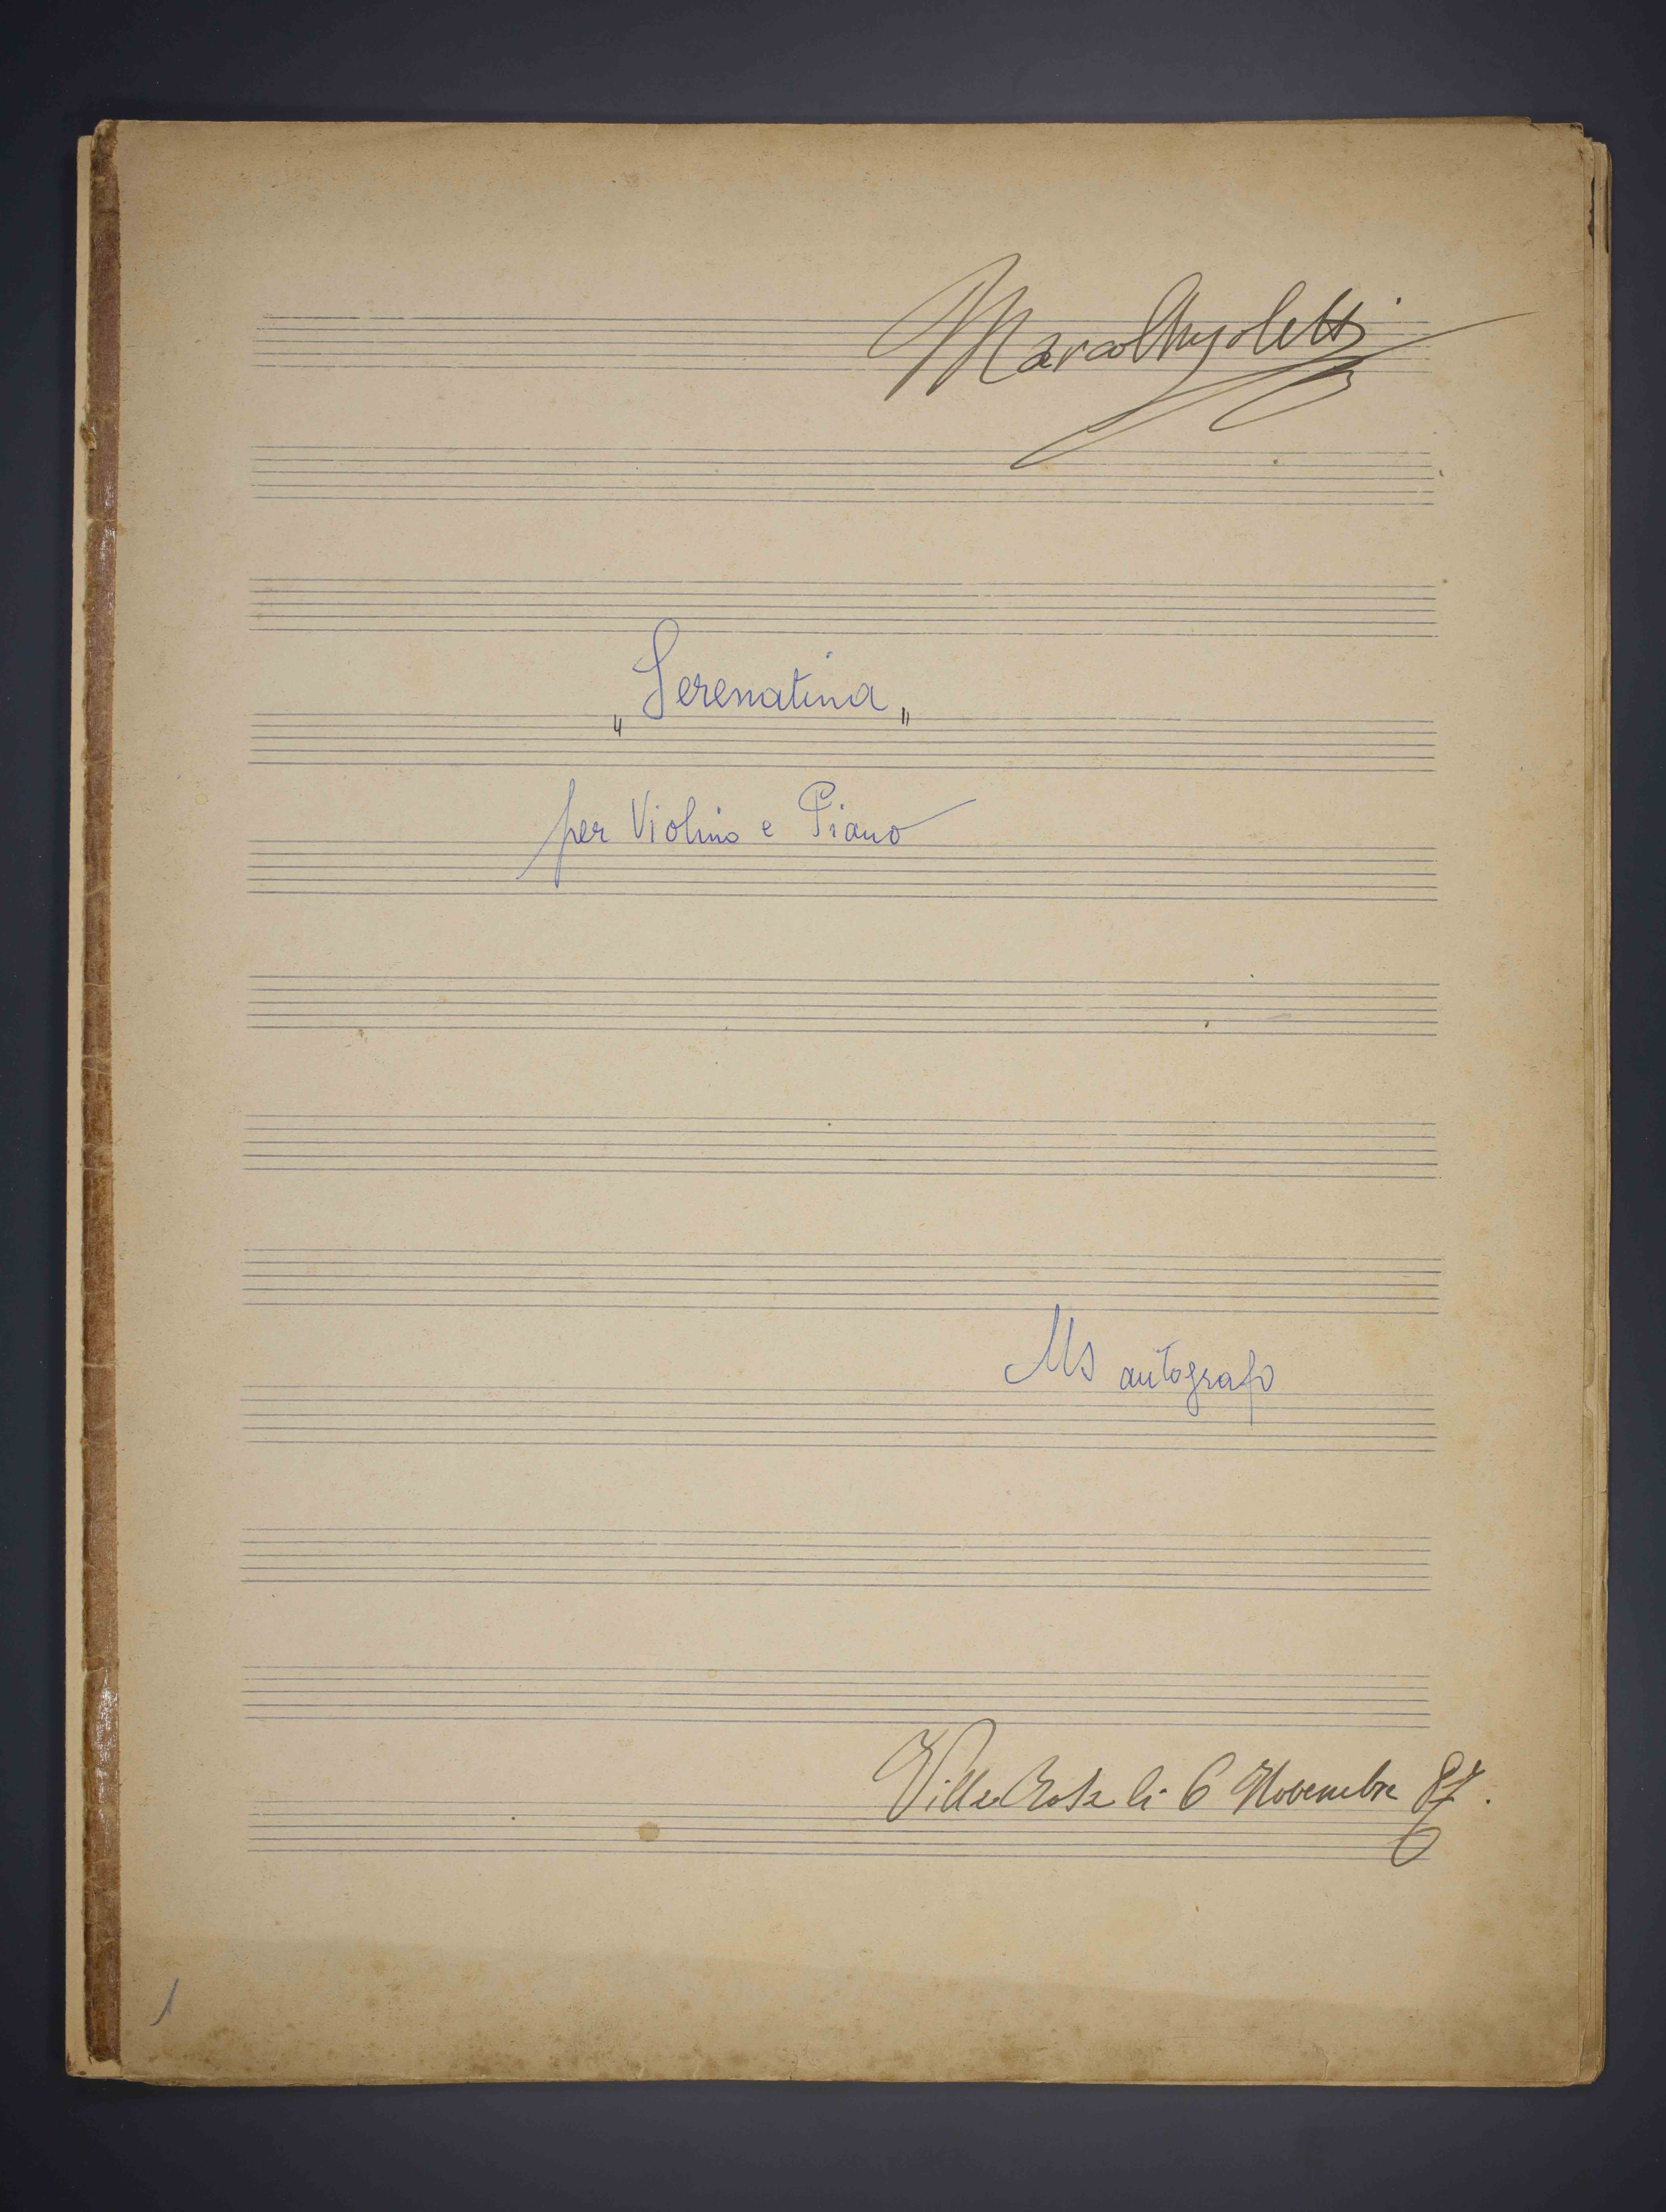 Marco Anzoletti
„Serenatina„
per Violino e Piano
Ms autografo
Villa Rosa li 6 Novembre 87.